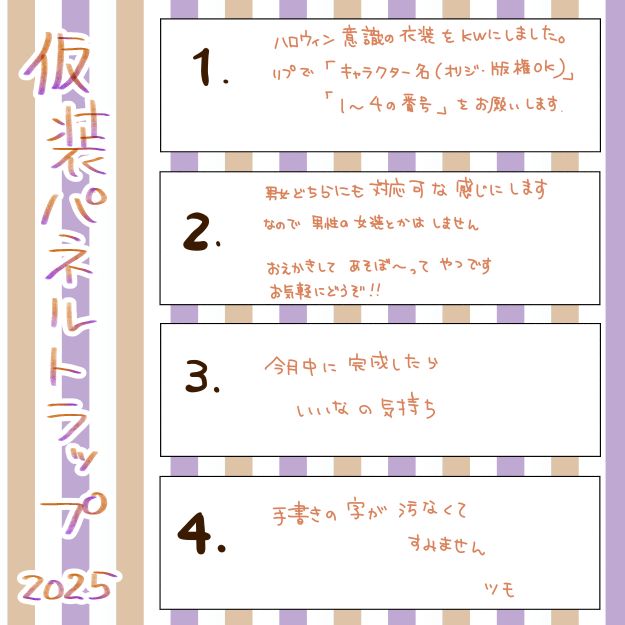 仮装パネルトラップ
2025
1.
ハロウィン意識の衣装をKWにしました。
リプで「キャラクター名(オリジ・版権OK)」
「1～4の番号」をお願いします.
2.
男女どちらにも対応可な感じにします
なので男性の女装とかはしません
おえかきしてあそぼ～ってやつです
お気軽にどうぞ!!
3.
今月中に完成したら
いいなの気持ち
4.
手書きの字が汚なくて
すみません
ツモ